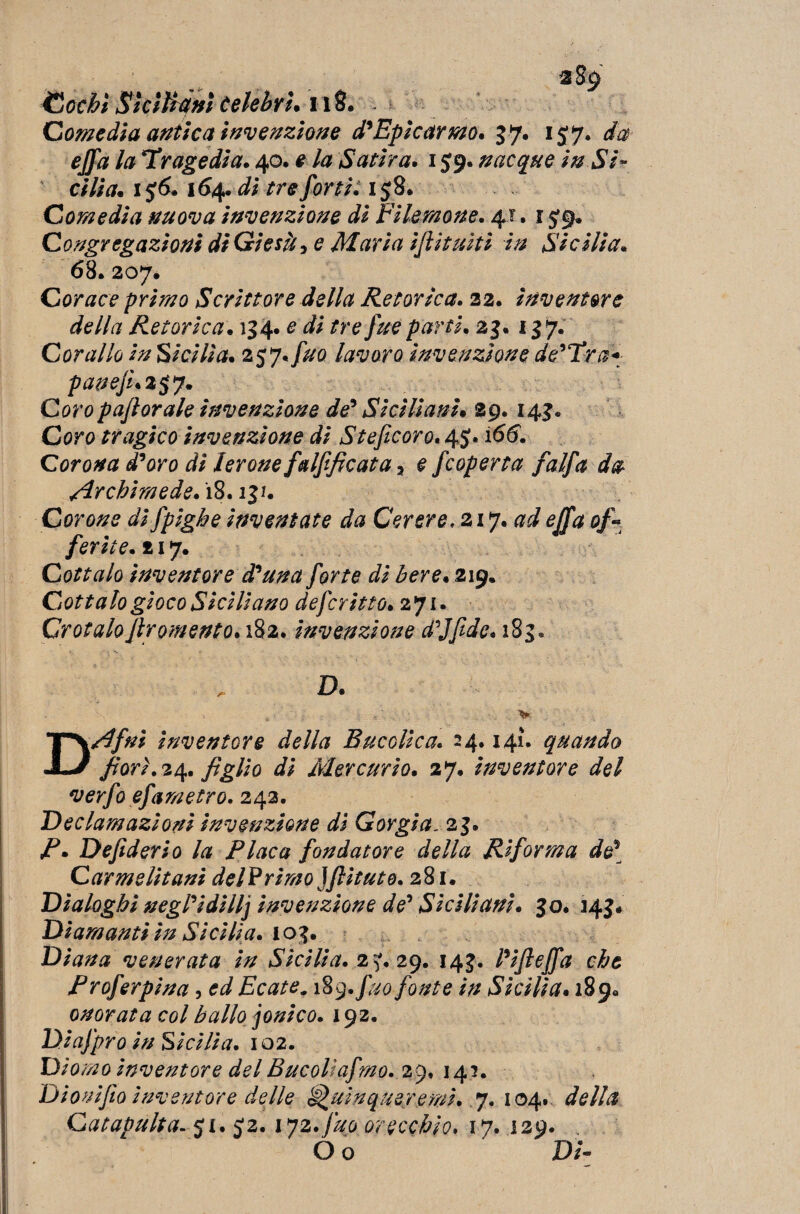 289
Cochi Siciliani celebri. 118.
Comedia antica invenzione d'Epicarmo. 37. 157. da
essa la Tragedia. 40. e la Satira. 159. nacque in Si-
cilia. 156. 164. di tre sorti. 158.
Comedia nuova invenzione di Filemone. 41. 159.
Congregazioni di Giesù, e Maria istituiti in Sicilia.
68. 207.
Corace primo Scrittore della Retorica. 22. inventore
della Retorica. 134. e di tre sue parti. 23. 137.
Corallo in Sicilia. 257. suo lavoro invenzione de'Tra-
panesi. 257.
Coro pastorale invenzione de' Siciliani. 29. 143.
Coro tragico invenzione di Stesicoro. 45. 166.
Corona d'oro di Ierone falsificata, e scoperta falsa da
Archimede. 18. 131.
Corone di spighe inventate da Cerere. 217. ad essa of-
ferite. 217.
Cottalo inventore d'una sorte di bere. 219.
Cottalo gioco Siciliano descritto. 271.
Crotalo stromento. 182. invenzione d'Iside. 183.
D.
DAfni inventore della Bucolica. 24. 141. quando
fiorì. 24. figlio di Mercurio. 27. inventore del
verso esametro. 242.
Declamazioni invenzione di Gorgia. 23.
P. Desiderio la Placa fondatore della Riforma de'
Carmelitani del Primo Istituto. 281.
Dialoghi negl'idillj invenzione de' Siciliani. 30. 143.
Diamanti in Sicilia. 103.
Diana venerata in Sicilia. 25. 29. 143. l'istessa che
Proserpina, ed Ecate. 189. suo fonte in Sicilia. 189.
onorata col ballo jonico. 192.
Diaspro in Sicilia. 102.
Diomo inventore del Bucoliasmo. 29. 142.
Dionisio inventore delle Quinqueremi. 7. 104. della
Catapulta. 51. 52. 172. suo orecchio. 17. 129.
O o Di-